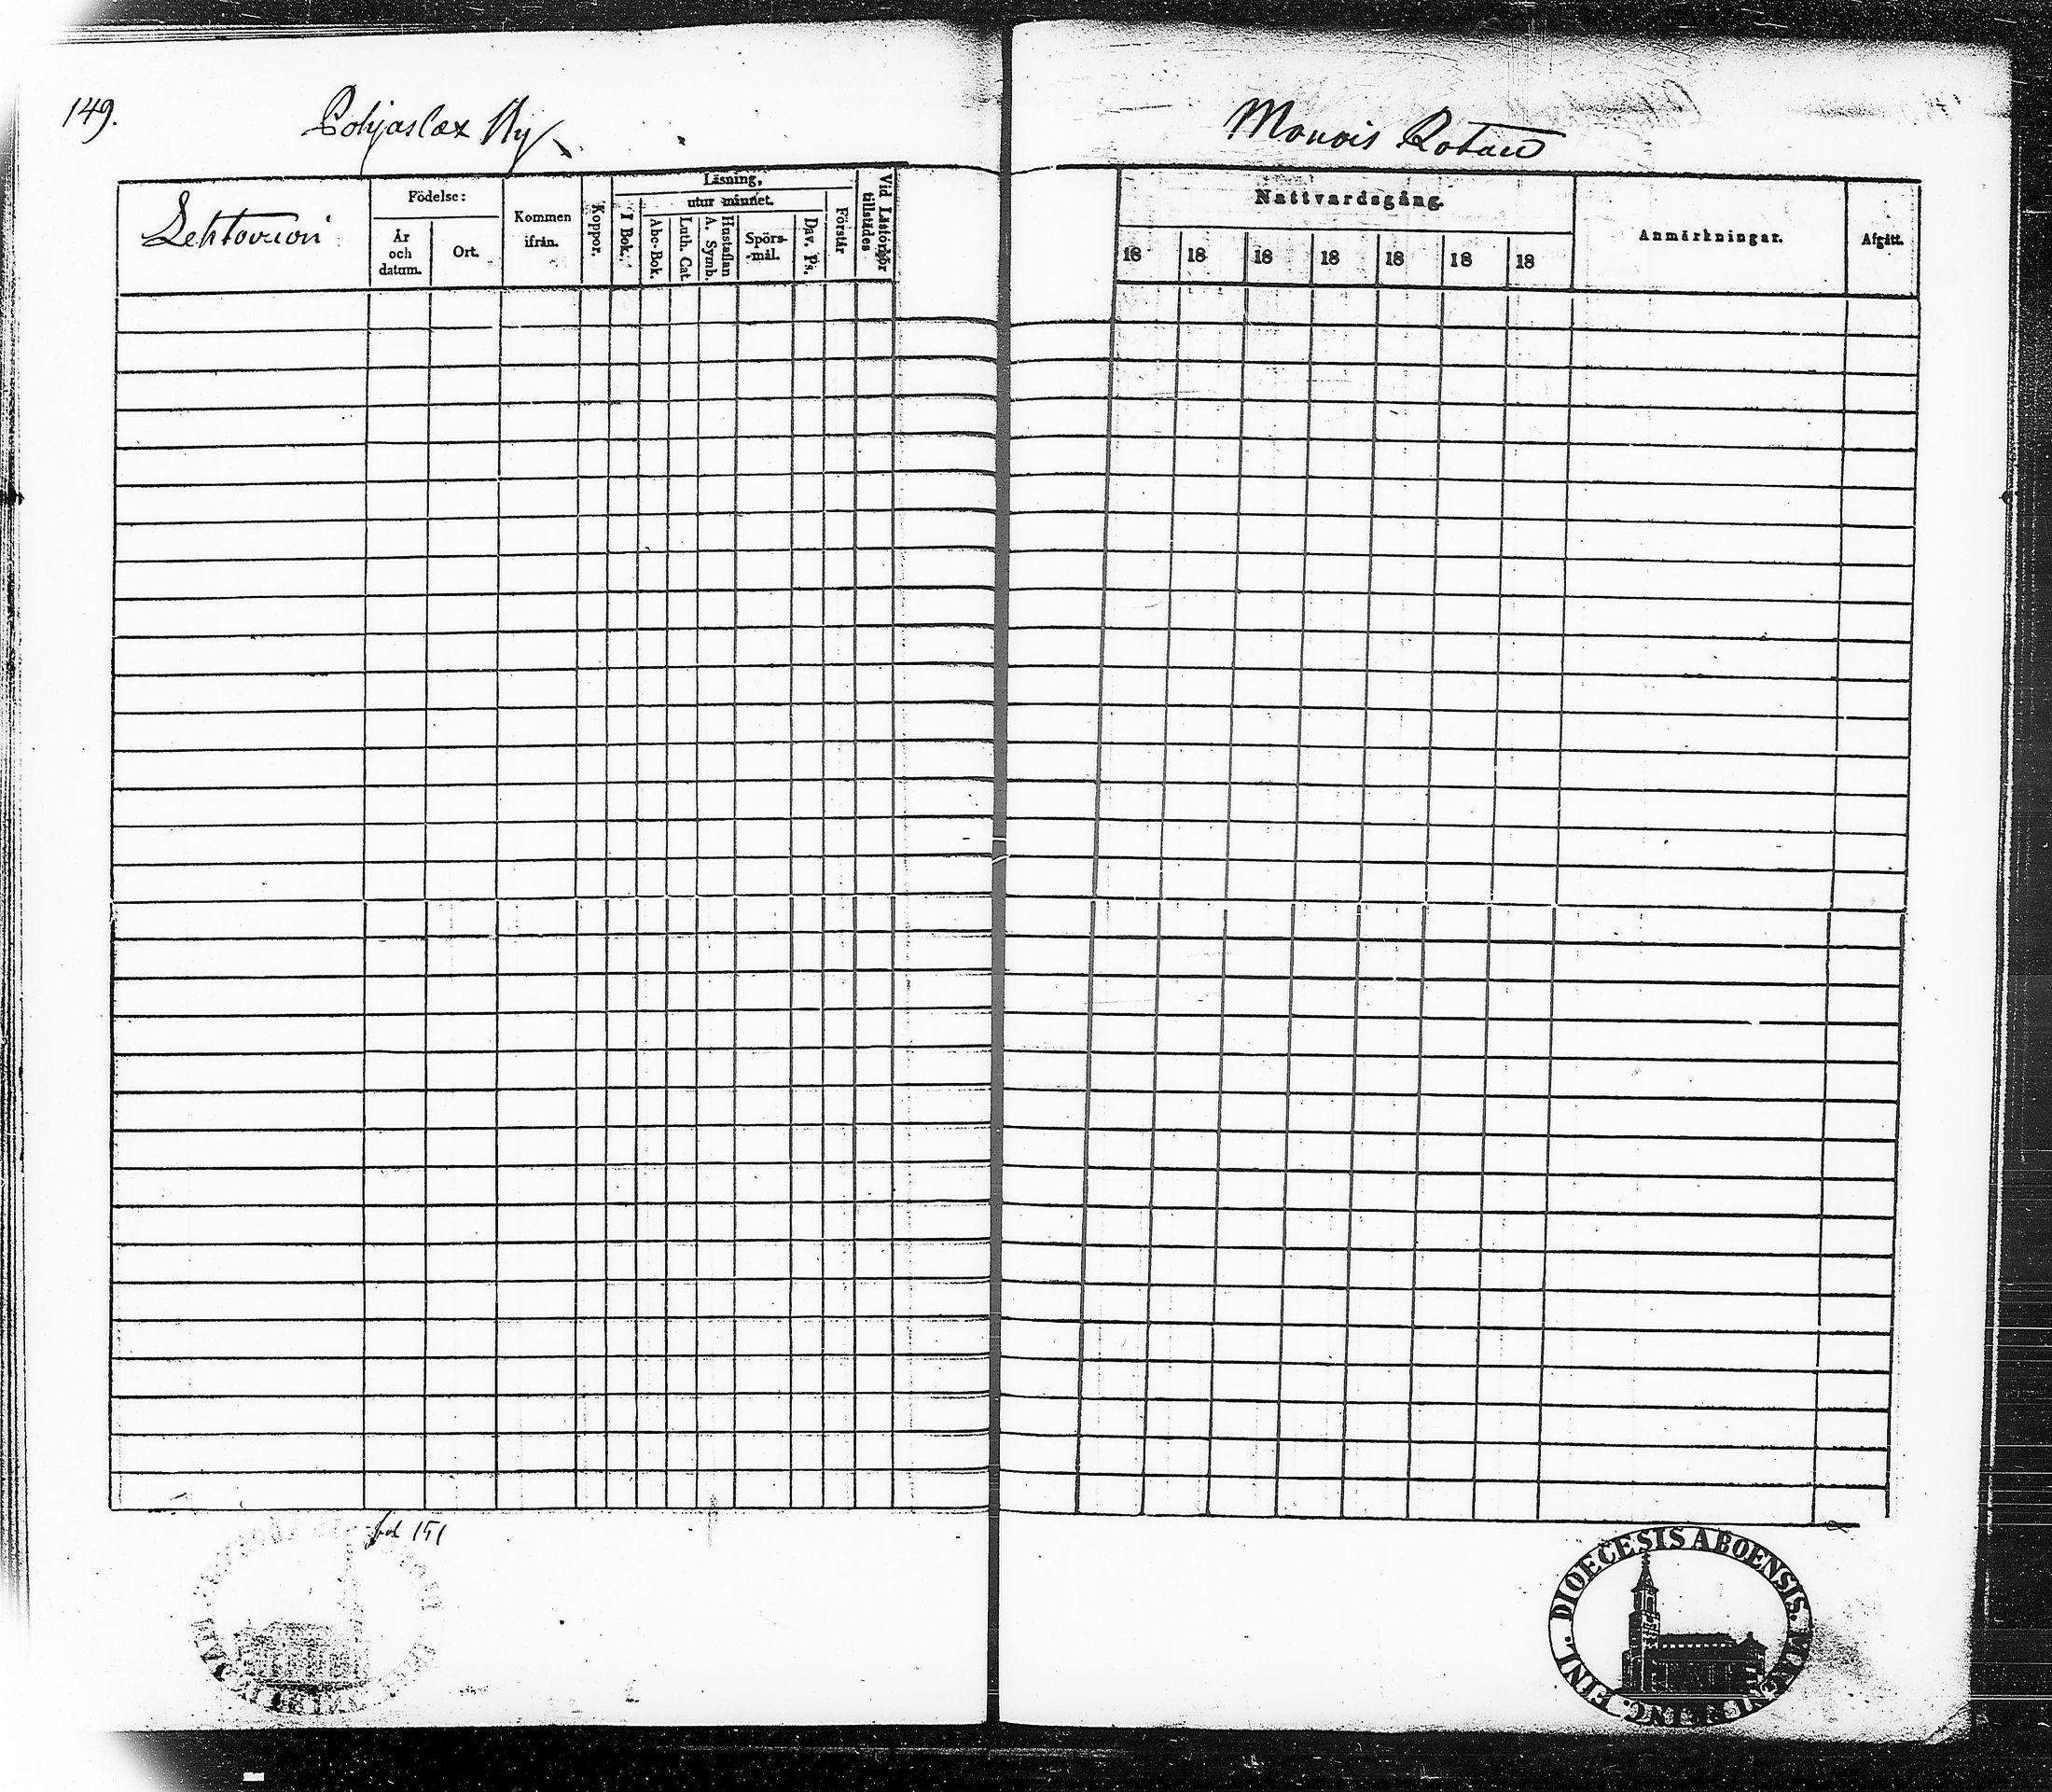 149.
Pohjaslax By
Monois Rotan
Lehtovuori
Födelse:
År och datum.
Ort.
Kommen ifrån.
Koppor.
Läsning,
utur minnet.
I Bok.
Abc-Bok.
Luth. Cat.
Hustaflan A. Symb.
Spörs-mål.
Dav. Ps.
Förstår
Vid Läsförhör tillstädes
Nattvardsgång.
18 18 18 18 18 18 18
Anmärkningar.
Afgått.
fol 151
DIOECESIS ABOENSIS.